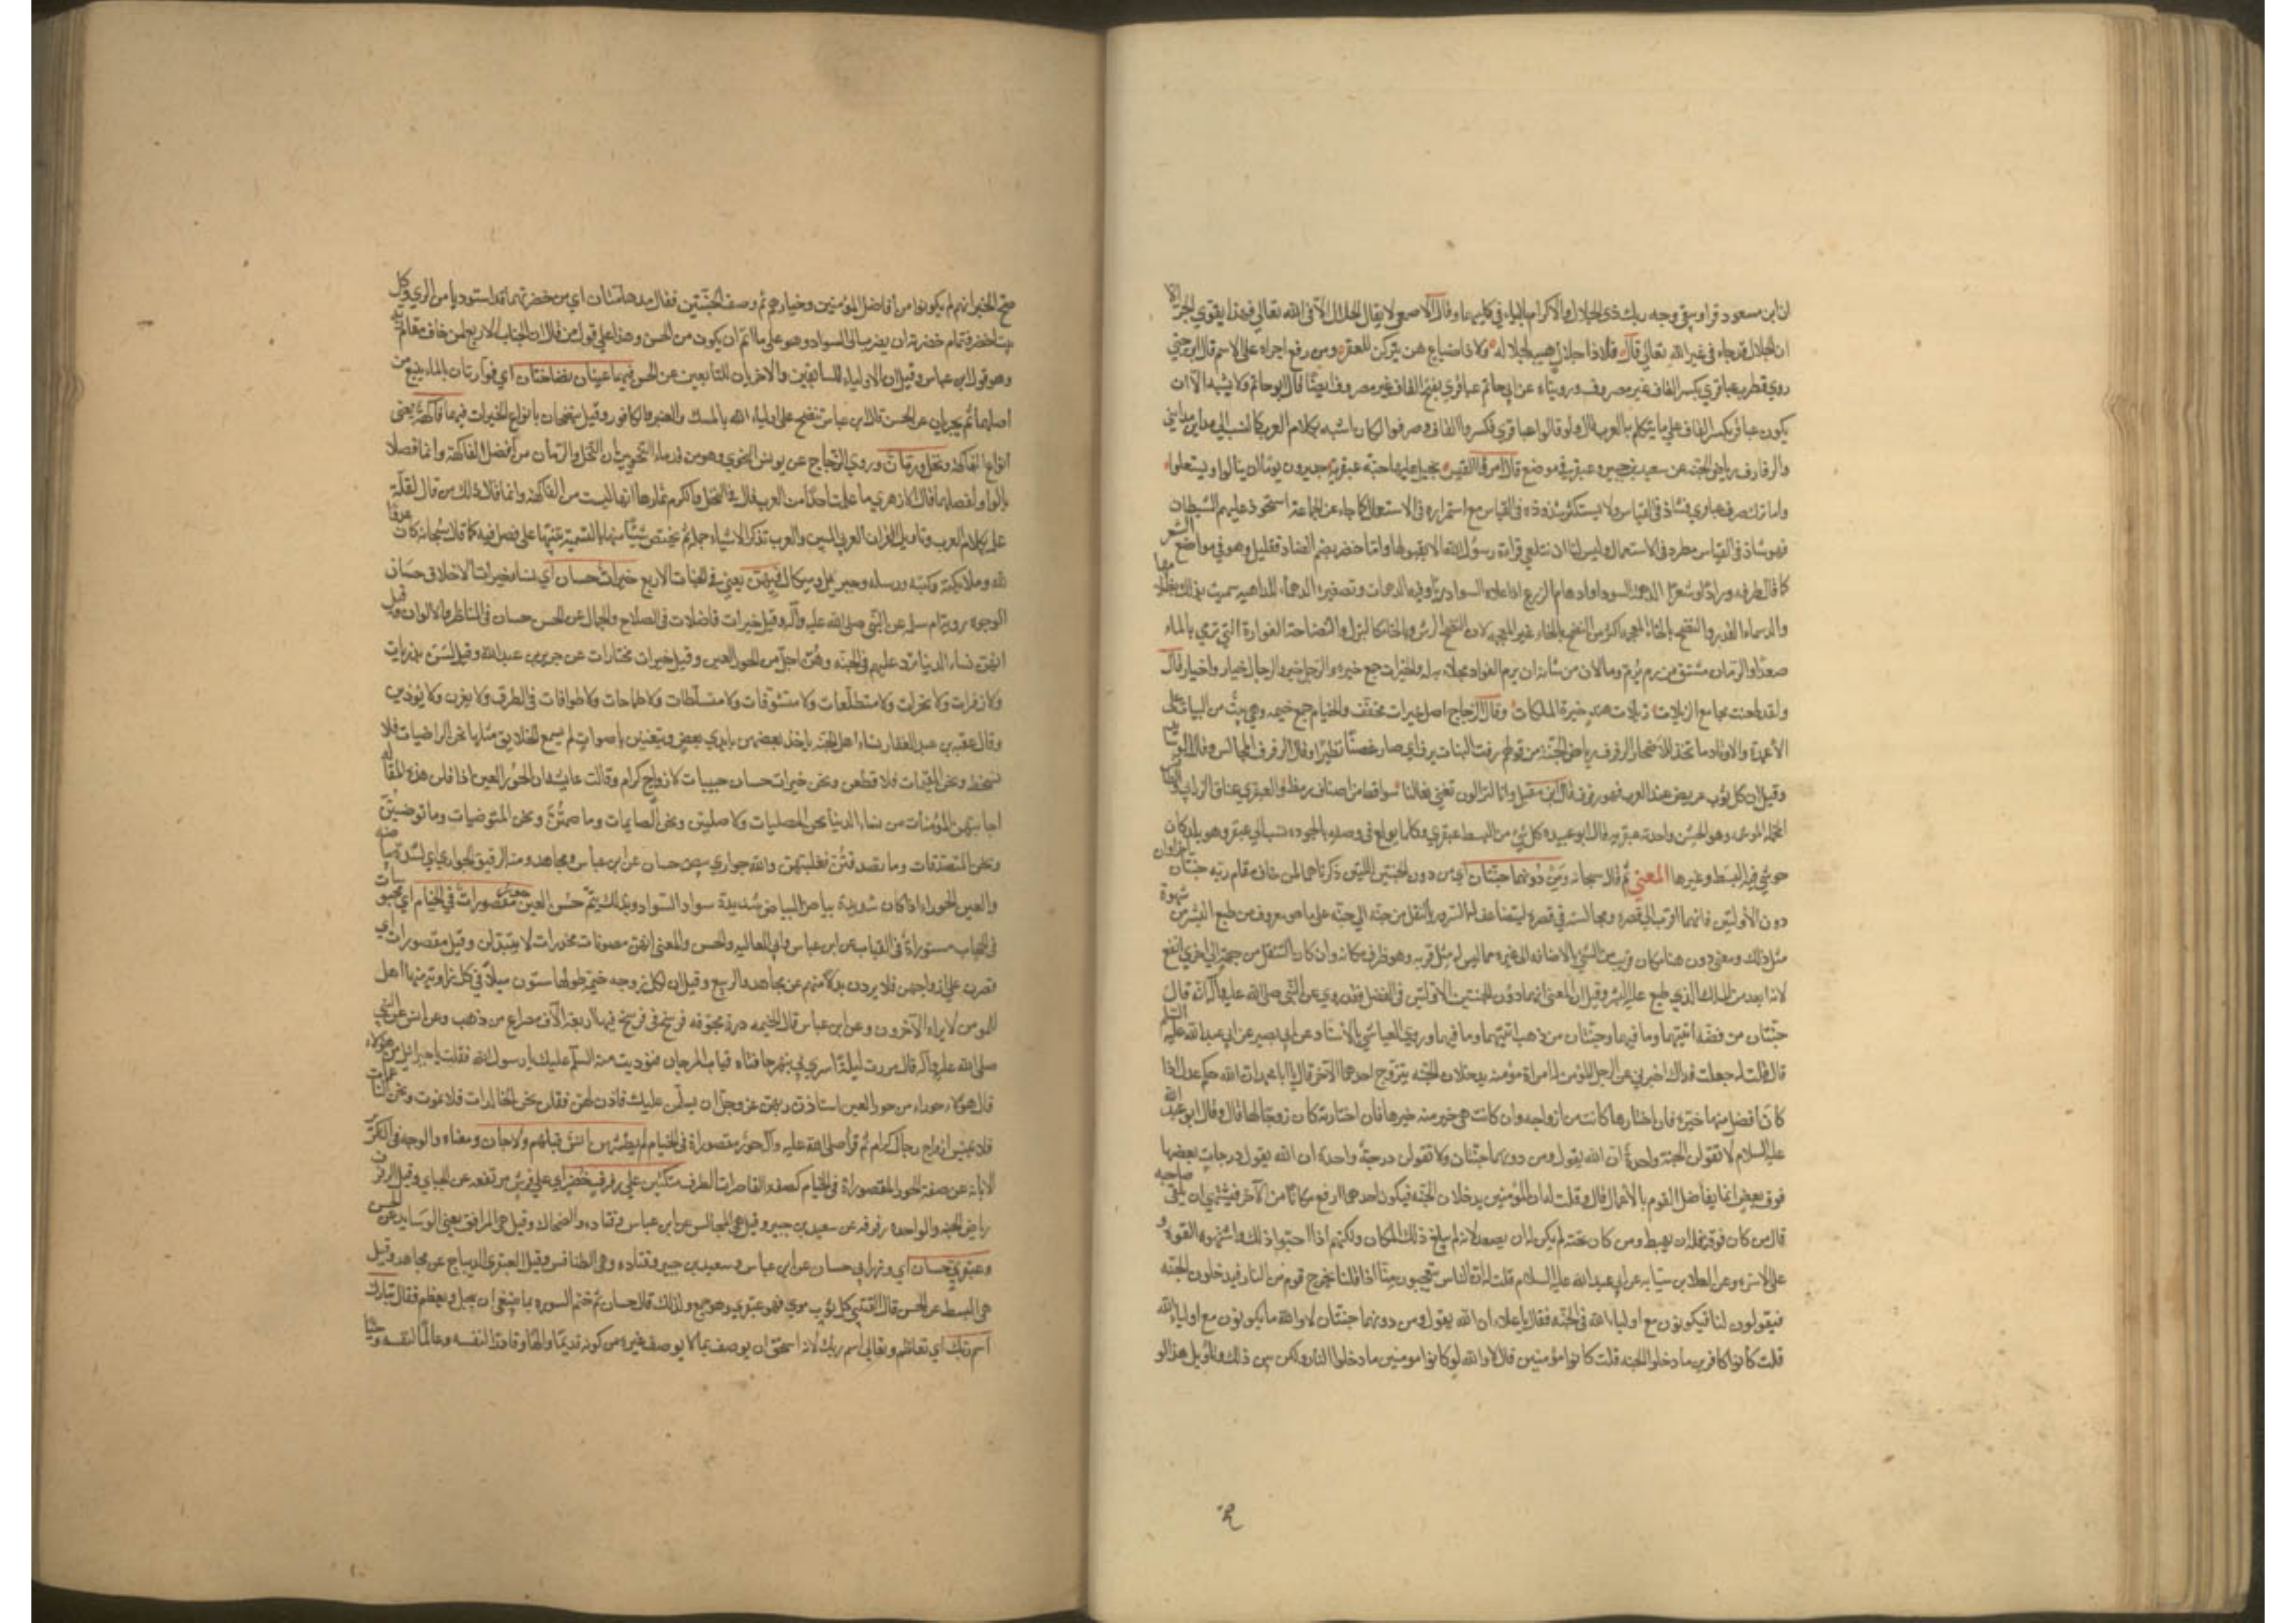 ان ابن مسعود قرا ويبقى وجه ربك ذي الجلال والاكرام بالياء في كليهما وقال الاصمعي لا يقال الجلال الا في الله تعالى فهذا يقوي الجر الا
ان الجلال قد جاء في غير الله تعالى قال فلا ذا جلال هبنه لجلاله ولا ذا ضياع هن يتركن للفقر ومن رفع اجراه على الاسم قال ابن جني
روى قطرب عباقري بكسر القاف غير مصروف ورويناه عن ابي حاتم عباقري بفتح القاف غير مصروف ايضا قال ابو حاتم ولا يشبه الا ان
يكون عباقر بكسر القاف على ما يتكلم به العرب قال ولو قالوا عباقري فكسروا القاف وصرفوا لكان اشبه بكلام العرب كالنسب الى مداين مدايني
والرفارف رياض الجنة عن سعيد بن جبير وعبقر موضع قال امرؤ القيس بخيل عليها جنة عبقرية جديرون يوما ان ينالوا ويستعلوا
واما ترك صرف عباقري فشاذ في القياس ولا يستكثر شذوذه في القياس مع استمراره في الاستعمال كما جاء عن الجماعة استحوذ عليهم الشيطان
فهو شاذ في القياس مطرد في الاستعمال وليس لنا ان نتلقى قراءة رسول الله الا بقبولها واما خضر بضم الضاد فقليل وهو في مواضع الشعر
كما قال طرفه ورادا وشقرا الدهمة السواد وادهام الزرع اذا علاه السواد ريا ومنه الدهماء وتصغيره الدهيماء للداهية سميت بذلك لظلامها
والدهماء القدر والنضخ بالخاء المعجمة اكثر من النضح بالحاء غير المعجمة لان النضح الرش وبالخاء كالبزل والنضاخة الفوارة التي ترمي بالماء
صعدا والرمان مشتق من رم يرم رما لان من شانه ان يرم الفواد بجلائه له والخيرات جمع خيرة والرجل خير والرجال خيار واخيار قال
ولقد طعنت مجامع الربلات ربلات هند خيرة الملكات وقال الزجاج اصل خيرات مخفف والخيام جمع خيمه وهي بيت من الثياب على
الاعمدة والاوتاد مما تتخذ للاصحار الرفرف رياض الجنة من قولهم رف النبات يرف اي صار غضا نضيرا وقيل الرفرف المجالس وقيل الوسايد
وقيل ان كل ثوب عريض عند العرب فهو رفرف قال ابن مقبل وانا لنزالون تغشى نعالنا سواقط من اصناف ريط ورفرف والعبقري عتاق الزرابي
المخملة الموشى وهو الحسن واحدته عبقرية قال ابو عبيده كل شيء من البسط عبقري وكلما بولغ في وصفه بالجوده نسب الى عبقر وهو بلد كان
يوشى فيه البسط وغيرها المعنى ثم قال سبحانه ومن دونهما جنتان اي من دون الجنتين اللتين ذكرناهما لمن خاف مقام ربه جنتان اخراوان
دون الاوليين فانهما اقرب الى قصره ومجالسه في قصره ليتضاعف له السرور بالتنقل من جنة الى جنة على ما هو معروف من طبع البشر من شهوة
مثل ذلك ومعنى دون هنا مكان قريب من الشيء بالاضافه الى غيره مما ليس له مثل قربه وهو ظرف مكان وان كان التنقل من جهة الى اخرى انفع
لانه ابعد من الملل الذي طبع عليه البشر وقيل ان المعنى انهما دون الجنتين الاوليين في الفضل فقد روي عن النبي صلى الله عليه وآله انه قال
جنتان من فضة ابنيتهما وما فيهما وجنتان من ذهب ابنيتهما وما فيهما وروى العياشي بالاسناد عن ابي بصير عن ابي عبد الله عليه السلام
قال قلت له جعلت فداك اخبرني عن الرجل المؤمن له امراة مؤمنه يدخلان الجنه يتزوج احدهما الآخر قال يا ابا محمد ان الله حكم عدل اذا
كان افضل منها خيره فان اختارها كانت من ازواجه وان كانت هي خير منه خيرها فان اختارته كان زوجا لها قال وقال ابو عبد الله
عليه السلام لا تقولن الجنة واحدة ان الله يقول ومن دونهما جنتان ولا تقولن درجة واحدة ان الله يقول درجات بعضها
فوق بعض انما يفاضل القوم بالأعمال قال وقلت له ان المؤمنين يدخلان الجنه فيكون احدهما ارفع مكانا من الآخر فيشتهي ان يلقى صاحبه
قال من كان فوقه فله ان يهبط ومن كان تحته لم يكن له ان يصعد لانه لم يبلغ ذلك المكان ولكنهم اذا احبوا ذلك واشتهوه التقوا
على الاسره وعن العلاء بن سيابه عن ابي عبد الله عليه السلام قلت له ان الناس يتعجبون منا اذا قلنا يخرج قوم من النار فيدخلون الجنه
فيقولون لنا فيكونون مع اولياء الله في الجنه فقال يا علاء ان الله يقول ومن دونهما جنتان لا والله ما يكونون مع اولياء الله
قلت كانوا كافرين ما دخلوا الجنه قلت كانوا مؤمنين قال لا والله لو كانوا مومنين ما دخلوا النار ولكن بين ذلك وتاويل هذا لو
صح الخبر انهم لم يكونوا من افاضل المؤمنين وخيارهم ثم وصف الجنتين فقال مدهامتان اي من خضرتهما قد اسودتا من الري وكل
نبت اخضر فتمام خضرته ان يضرب الى السواد وهو على ما اتم ان يكون من الحسن وهذا على قول من قال ان الجنات الاربع لمن خاف مقام ربه
وهو قول ابن عباس وقيل ان الاولياء للسابقين والاخريان للتابعين عن الحسن فيهما عينان نضاختان اي فوارتان بالماء ينبع من
اصلهما ثم يجريان عن الحسن قال ابن عباس تنضخ على اولياء الله بالمسك والعنبر والكافور وقيل ينضخان بانواع الخيرات فيهما فاكهة يعني
انواع الفاكهة ونخل ورمان وروى الزجاج عن يونس النحوي وهو من قدماء النحويين ان النخل والرمان من افضل الفاكهة وانما فصلا
بالواو لفضلهما قال الازهري ما علمت احدا من العرب قال في النخل والكرم ثمارها انها ليست من الفاكهة وانما قال ذلك من قال لقلة
على بكلام العرب وتاويل القران العربي المبين والعرب تذكر الاشياء جملة ثم تختص شيئا منها بالتسمية تنبيها على فضل فيه كما قال سبحانه من كان عدوا
لله وملائكته وكتبه ورسله وجبريل وميكال فيهن يعني في الجنات الاربع خيرات حسان اي نساء خيرات الاخلاق حسان
الوجوه روته ام سلمه عن النبي صلى الله عليه وآله وقيل خيرات فاضلات في الصلاح والجمال عن الحسن حسان في المناظر والالوان وقيل
انهن نساء الدنيا ترد عليهم في الجنه وهن اجمل من الحور العين وقيل خيرات مختارات عن جرير بن عبد الله وقيل لسن بذربات
ولا زفرات ولا نخرات ولا متطلعات ولا متشوقات ولا متسلطات ولا طماحات ولا طوافات في الطرق ولا يغرن ولا يؤذين
وقال عقبه بن عبد الغفار نساء اهل الجنه ياخذ بعضهن بايدي بعض ويتغنين باصوات لم يسمع الخلايق مثلها نحن الراضيات فلا
نسخط ونحن المقيمات فلا نظعن ونحن خيرات حسان حبيبات لازواج كرام وقالت عايشه ان الحور العين اذا قلن هذه المقاله
اجابتهن المؤمنات من نساء الدنيا نحن المصليات وما صليتن ونحن الصايمات وما صمتن ونحن المتوضيات وما توضيتن
ونحن المتصدقات وما تصدقتن فغلبنهن والله حور اي بيض حسان عن ابن عباس ومجاهد ومنه الدقيق الحواري لشدة بياضه
والعين الحوراء اذا كانت شديدة بياض البياض شديدة سواد السواد وبذلك يتم حسن العين مقصورات في الخيام اي محبوسات
في الحجاب مستورات في القباب عن ابن عباس وابي العاليه والحسن والمعنى انهن مصونات مخدرات لا يبتذلن وقيل مقصورات اي
قصرن على ازواجهن فلا يردن بدلا منهم عن مجاهد والربيع وقيل ان لكل زوجه خيمة طولها ستون ميلا في كل زاوية منها اهل
للمومن لا يراه الآخرون وعن ابن عباس قال الخيمه درة مجوفه فرسخ في فرسخ فيها اربعة الآف مصراع من ذهب وعن انس عن النبي
صلى الله عليه وآله قال مررت ليلة اسري بي بنهر حافتاه قباب المرجان فنوديت منه السلم عليك يا رسول الله فقلت يا جبرائيل من هؤلاء
قال هؤلاء حوراء من حور العين استاذن ربهن عز وجل ان يسلمن عليك فاذن لهن فقلن نحن الخالدات فلا نموت ونحن الناعمات
فلا نبئس ازواج رجال كرام ثم قرا صلى الله عليه وآله حور مقصورات في الخيام لم يطمثهن انس قبلهم ولا جان ومعناه والوجه في التكرير
الابانه عن صفة الحور المقصورات في الخيام كصفه القاصرات الطرف متكئين على رفرف خضر اي على فرش مرتفعه عن الجباي وقيل الرفرف
رياض الجنه والواحده رفرفه عن سعيد بن جبير وقيل هي المجالس عن ابن عباس وقتاده والضحاك وقيل هي المرافق يعني الوسايد عن الحسن
وعبقري حسان اي وزرابي حسان عن ابن عباس وسعيد بن جبير وقتاده وهي الطنافس وقيل العبقري الديباج عن مجاهد وقيل
هي البسط عن الحسن قال القتيبي كل ثوب موشى فهو عبقري وهو جمع ولذلك قال حسان ثم ختم السوره بما ينبغي ان يبجل ويعظم فقال تبارك
اسم ربك اي تعاظم وتعالى اسم ربك لانه استحق ان يوصف بما لا يوصف غيره من كونه قديما والها وقادرا لنفسه وعالما لنفسه وحيا